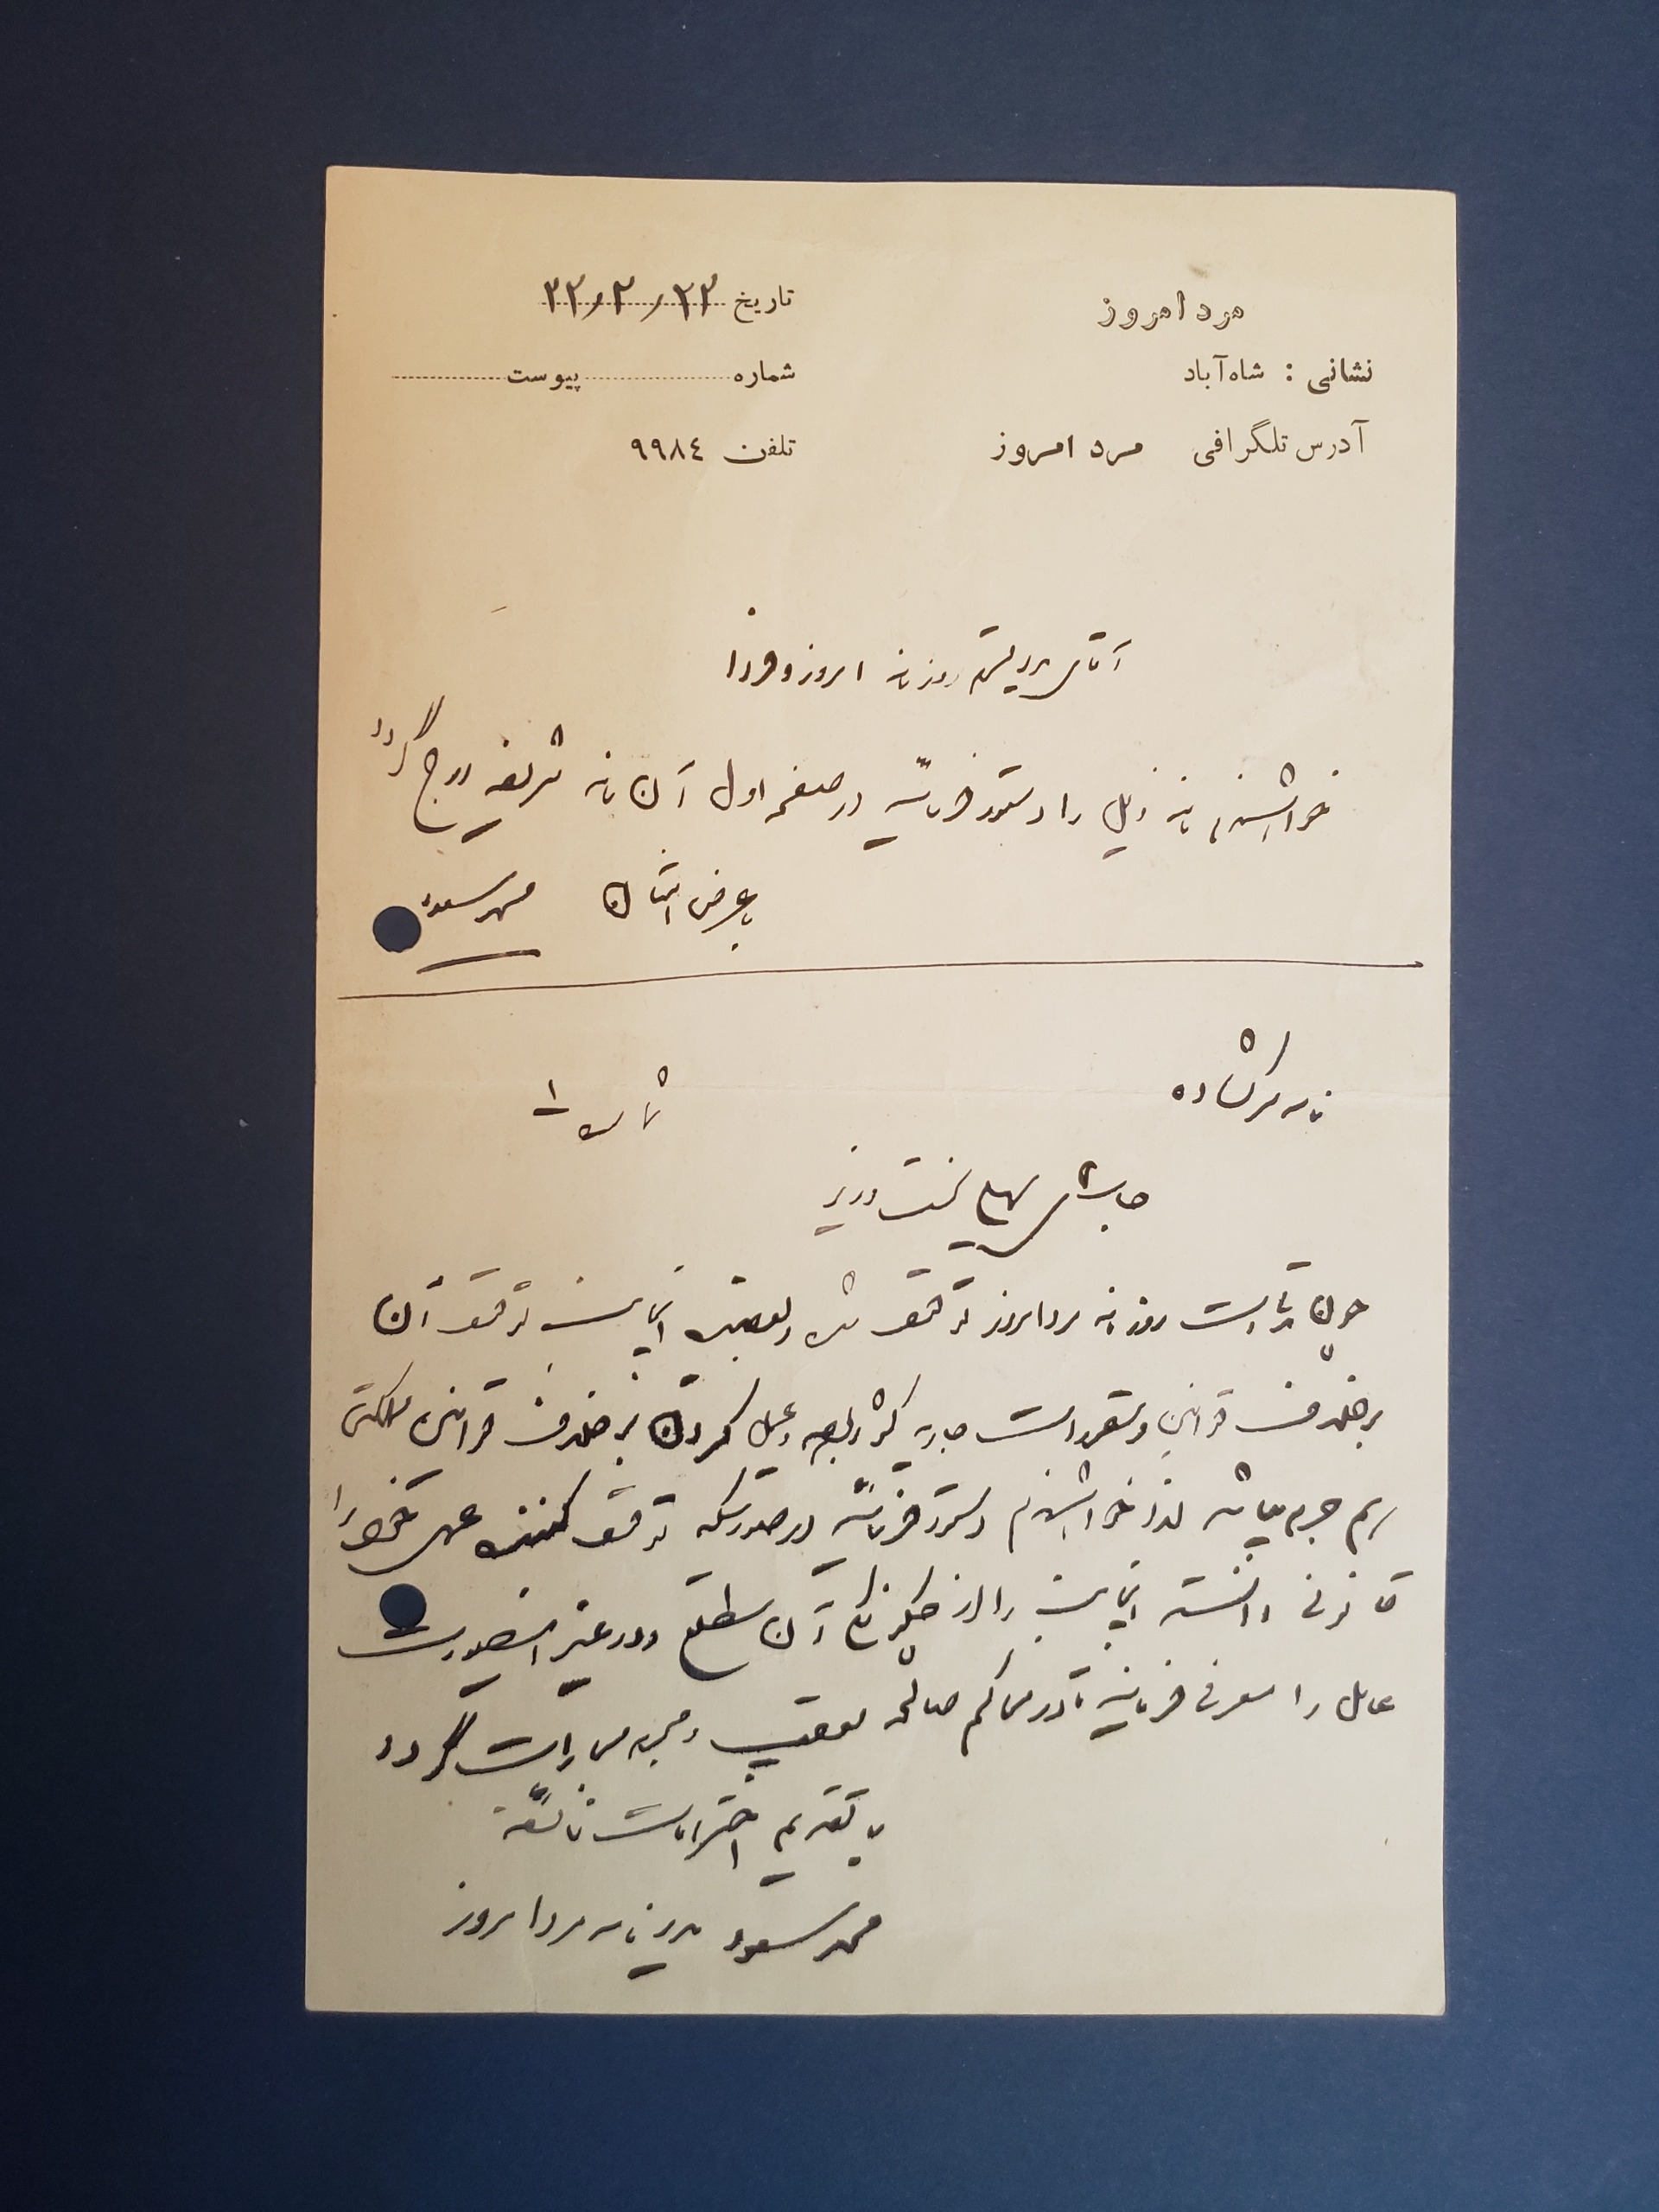 مرد امروز
تاریخ ۲۲/۲/۲۳
نشانی : شاه‌آباد
شماره پیوست
آدرس تلگرافی مرد امروز
تلفن ۹۹۸٤
آقای مدیر محترم روزنامه امروز و فردا
خواهشمندم نامه ذیل را دستور فرمائید در صفحه اول آن نامه شریفه درج گردد
با عرض امتنان محمد مسعود
نامه سرگشاده
شماره ۱
جناب آقای سهیلی نخست وزیر
چون مدتی است روزنامه مرد امروز توقیف شده و بعقیده اینجانب توقیف آن
برخلاف قوانین و مقررات جاریه کشور بوده و عمل کردن برخلاف قوانین مملکتی
هم جرم میباشد لذا خواهشمندم دستور فرمائید در صورتیکه توقیف کننده عمل خود را
قانونی دانسته اینجانب را از چگونگی آن مطلع و در غیر اینصورت
عامل را معرفی فرمائید تا در محاکم صالحه تعقیب و مجازات گردد
با تقدیم احترامات فائقه
محمد مسعود مدیر نامه مرد امروز